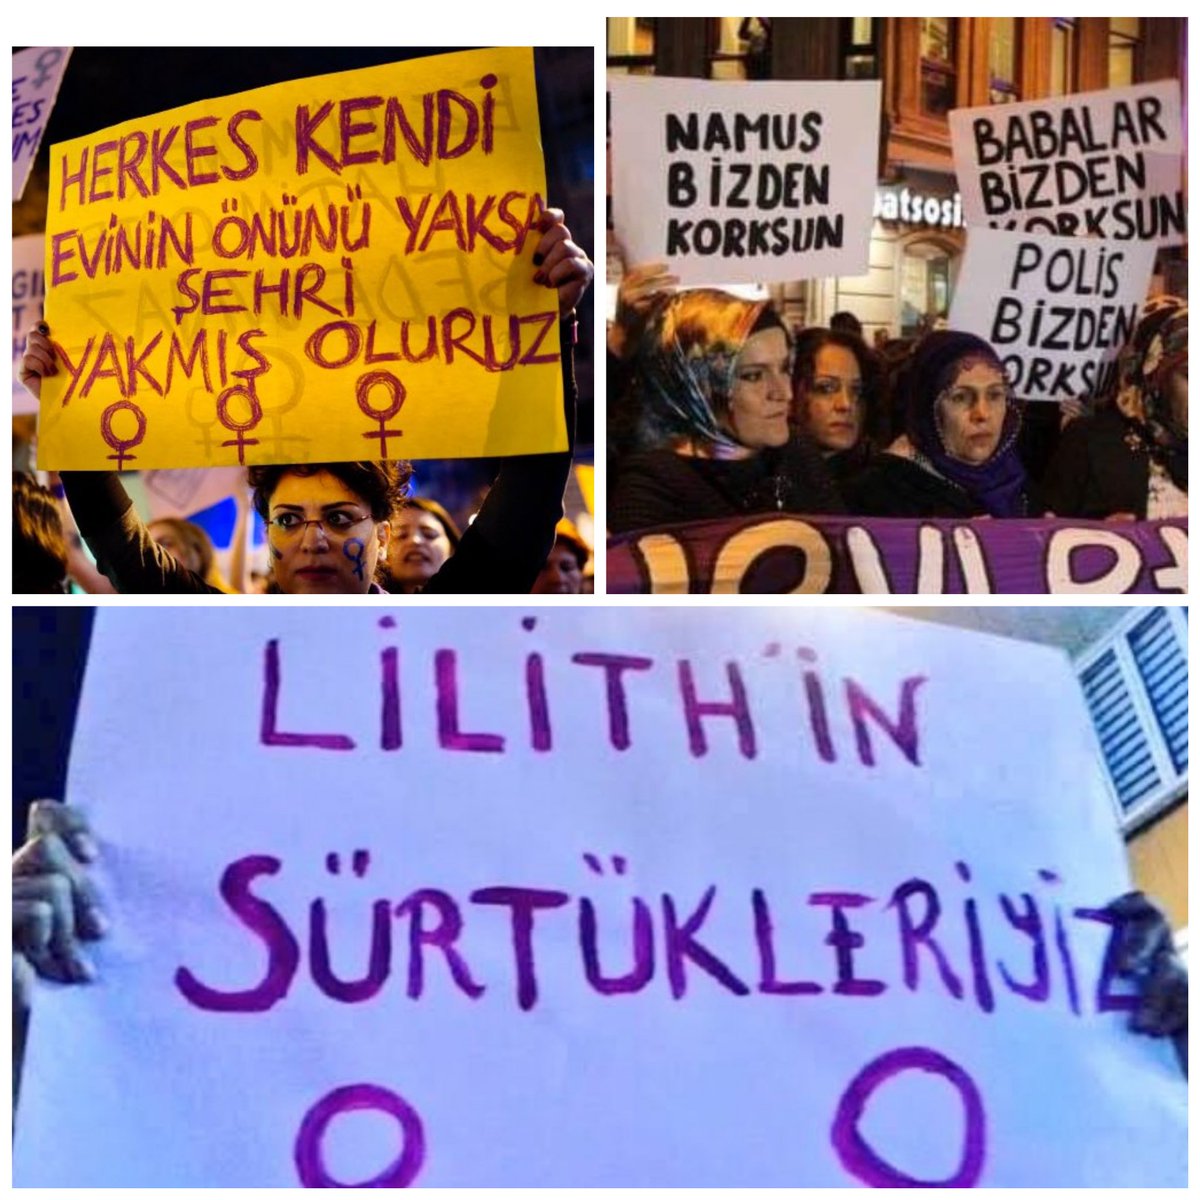 HERKES KENDİ
EVİNİN ÖNÜNÜ YAKSA
ŞEHRİ
YAKMIŞ OLURUZ
NAMUS
BİZDEN
KORKSUN
BABALAR
BİZDEN
KORKSUN
POLİS
BİZDEN
KORKSUN
LİLİTH'İN
SÜRTÜKLERİYİZ